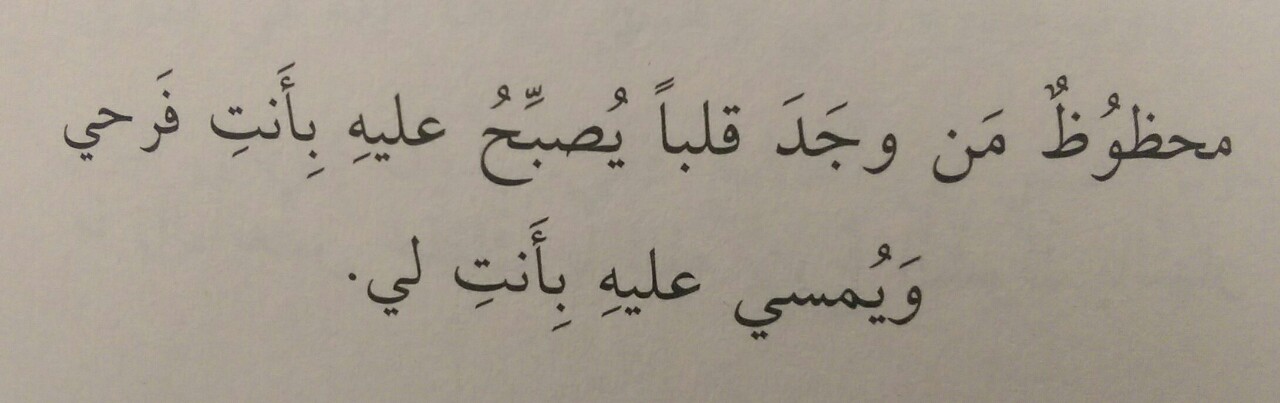 محظوُظٌ مَن وجَدَ قلباً يُصبِّحُ عليهِ بِأَنتِ فَرحي
وَيُمسي عليهِ بِأَنتِ لي.